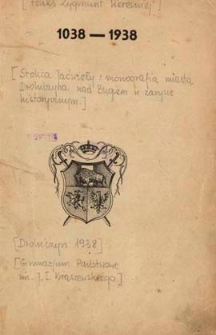 [Feliks Zygmunt Weremiej]
1038 — 1938
[Stolica Jaćwieży i monografia miasta
Drohiczyna nad Bugiem w zarysie
historycznym.]
[Drohiczyn 1938]
[Gimnazjum Państwowe
im. J. I. Kraszewskiego]